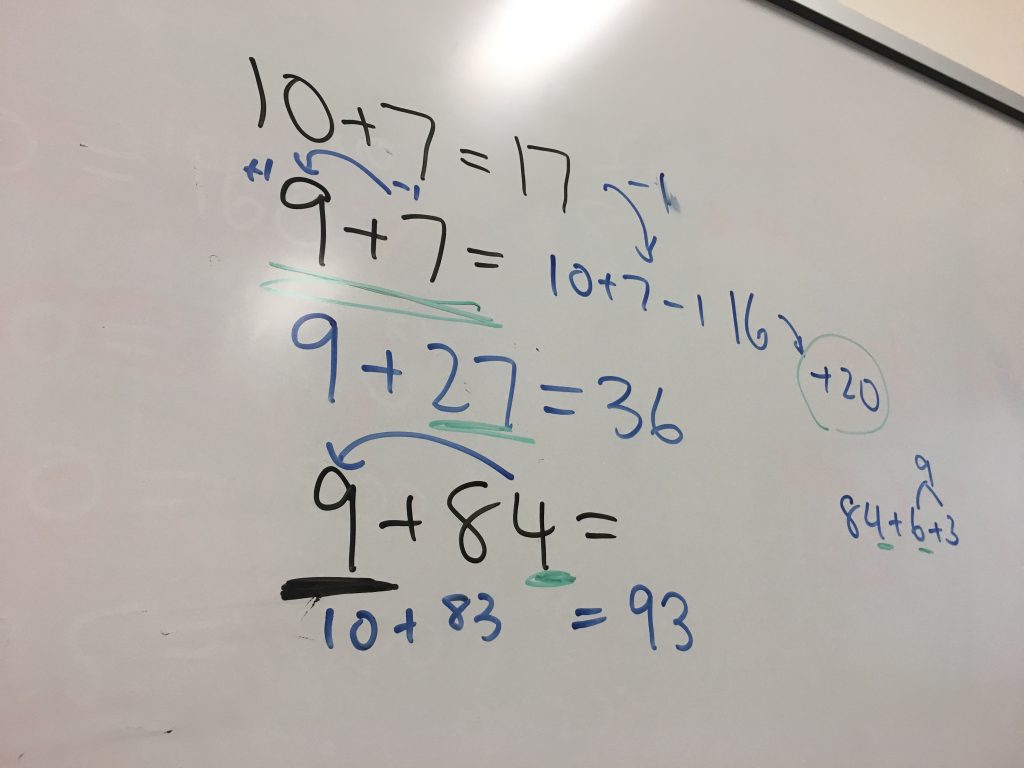 10+7=17
+1 -1 -1
9+7= 10+7-1 16
+20
9+27=36
9
84+6+3
9+84=
10+83 =93